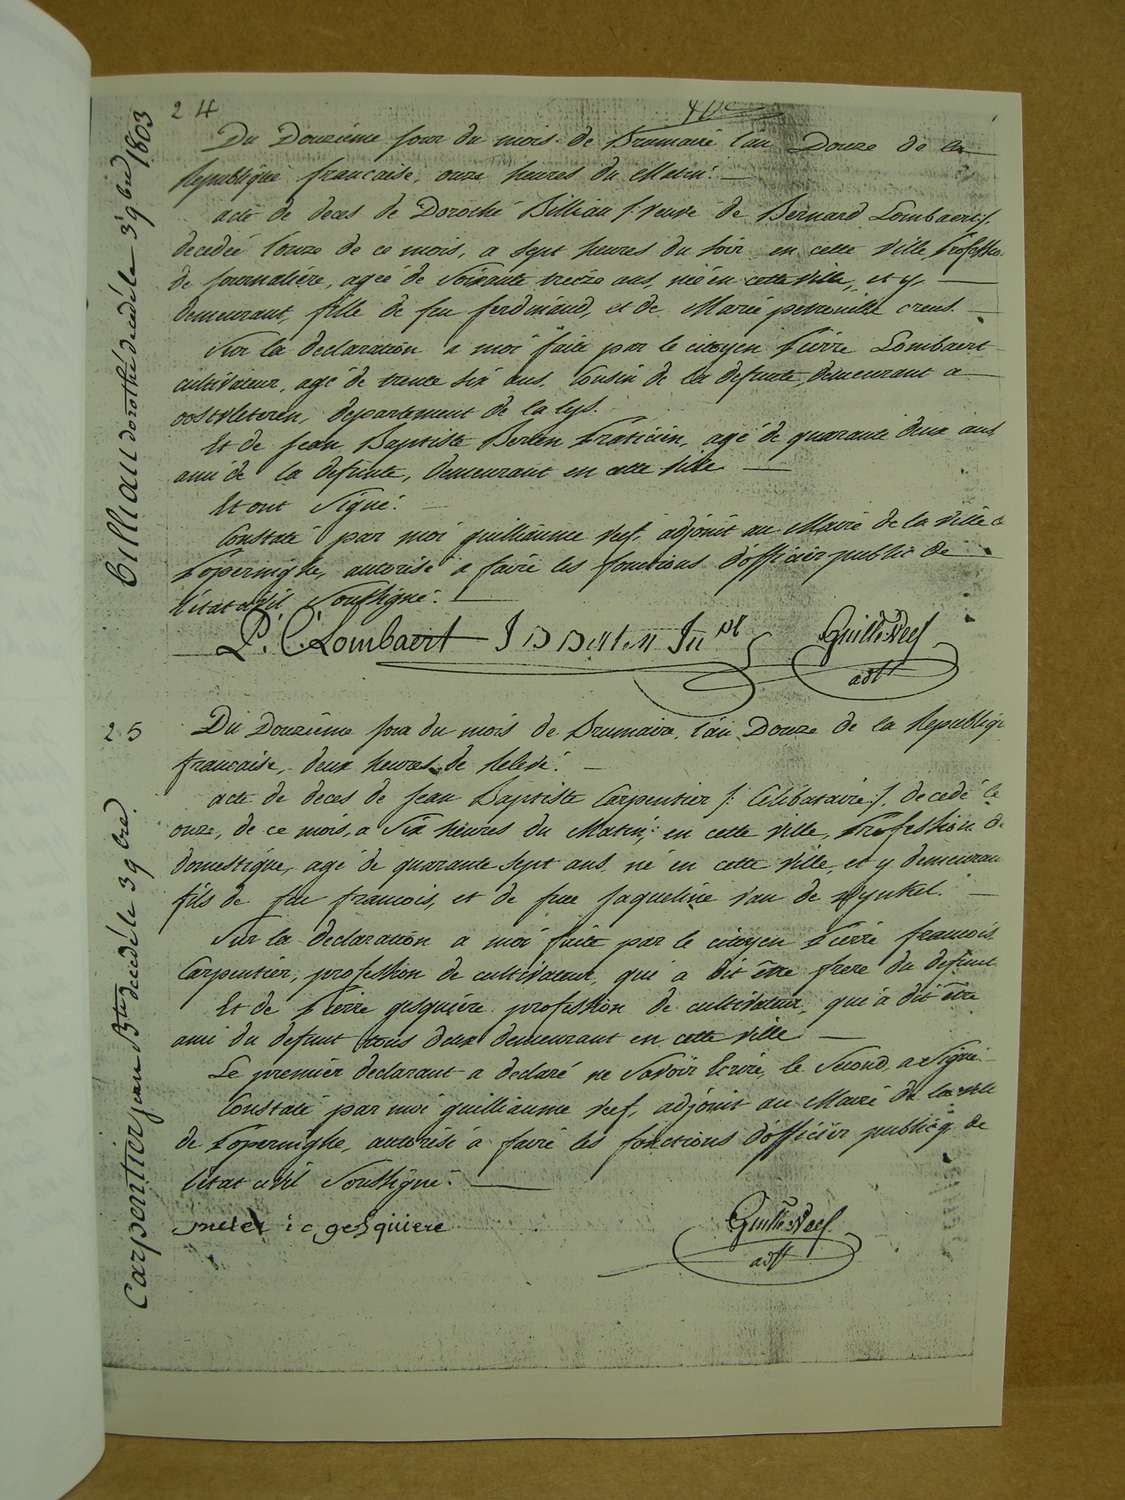 24
Du Douziéme jour du mois de Brumaire l'an Douze de la
Republique francaise, onze heures du Matin: —
acte de deces de Dorothé Billiau /: veuve de Bernard Lombaert :/
decedée l'onze de ce mois, a sept heures du soir en cette ville Professi
de journaliére, ageé de Soixante treize ans, née en cette ville, et y,
demeurant, fille de feu ferdinand, et de Marie petronille creus. —
Sur la declaration a moi faite par le citoyen Pierre Lombaert
cultivateur, agé de trente six ans, Cousin de la defunte, demeurant a
oostvleteren, departement de la lys.
Et de Jean Baptiste Praticien, agé de quarante deux ans
ami de la defunte, demeurant en cette ville —
Et ont Signé:
Constaté par moi guilliaume Neef, adjoint au Maire de la ville d
Poperinghe, autorisé a faire les fonctions d'officier public de
l'état civil Soussigné: —
P. C. Lombaert Guille Neef
adjt
billiau dorothé decedé le 3 9bre 1803
25
Du Douziéme jour du mois de Brumaire, l'an Douze de la Republiq
francaise, deux heures de Relevé: —
acte de deces de Jean Baptiste Carpentier /: Célibataire :/, decedé le
onze, de ce mois, a Six heures du Matin, en cette ville, Profession de
domestique, agé de quarante sept ans, né en cette ville, et y demeuran
fils de feu francois, et de feue Jaqueline van de Wynkel. —
Sur la declaration a moi faite par le citoyen Pierre francois
Carpentier, profession de cultivateur, qui a dit être frere du defunt
Et de Pierre gesquiére profession de cultivateur, qui a dit être
ami du defunt tous deux demeurant en cette ville —
Le premier declarant a declaré ne Savoir Ecrire, le Second, a Signé
Constaté par moi guilliaume Neef, adjoint au Maire de la ville
de Poperinghe, autorisé a faire les fonctions d'officier publicq de
l'état civil Soussigné: —
gesquiere Guille Neef
adjt
Carpentier jean Bte decedé le 3 9bre.